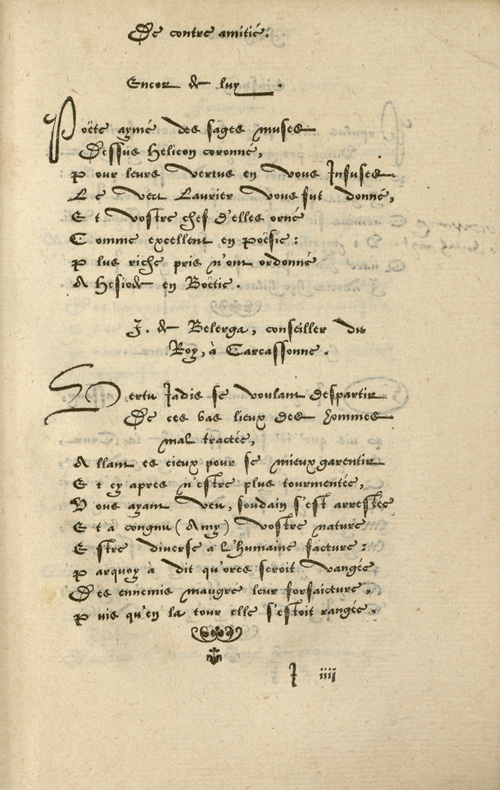 De contre amitié.
Encor de luy.
Poëte aymé des sages muses
Dessus Helicon coronné,
Pour leurs vertus en vous Infuses
Le vert Laurier vous fut donné,
Et vostre chef d'elles orné
Comme excellent en poësie:
Plus riche pris n'ont ordonné
A Hesiode en Boëtie.
J. de Belerga, conseiller du
Roy, à Carcassonne.
Vertu Jadis se voulant despartir
De ces bas lieux des hommes
mal tractée,
Allant es cieux pour se mieux garentir
Et cy apres n'estre plus tourmentée,
Vous ayant veu, soudain s'est arrestée
Et à congnu (Amy) vostre nature
Estre diverse à l'humaine facture:
Parquoy à dit qu'ores seroit vangée
Des ennemis maugre leur forfaicture,
Puis qu'en la tour elle s'estoit rangée.
J iiii